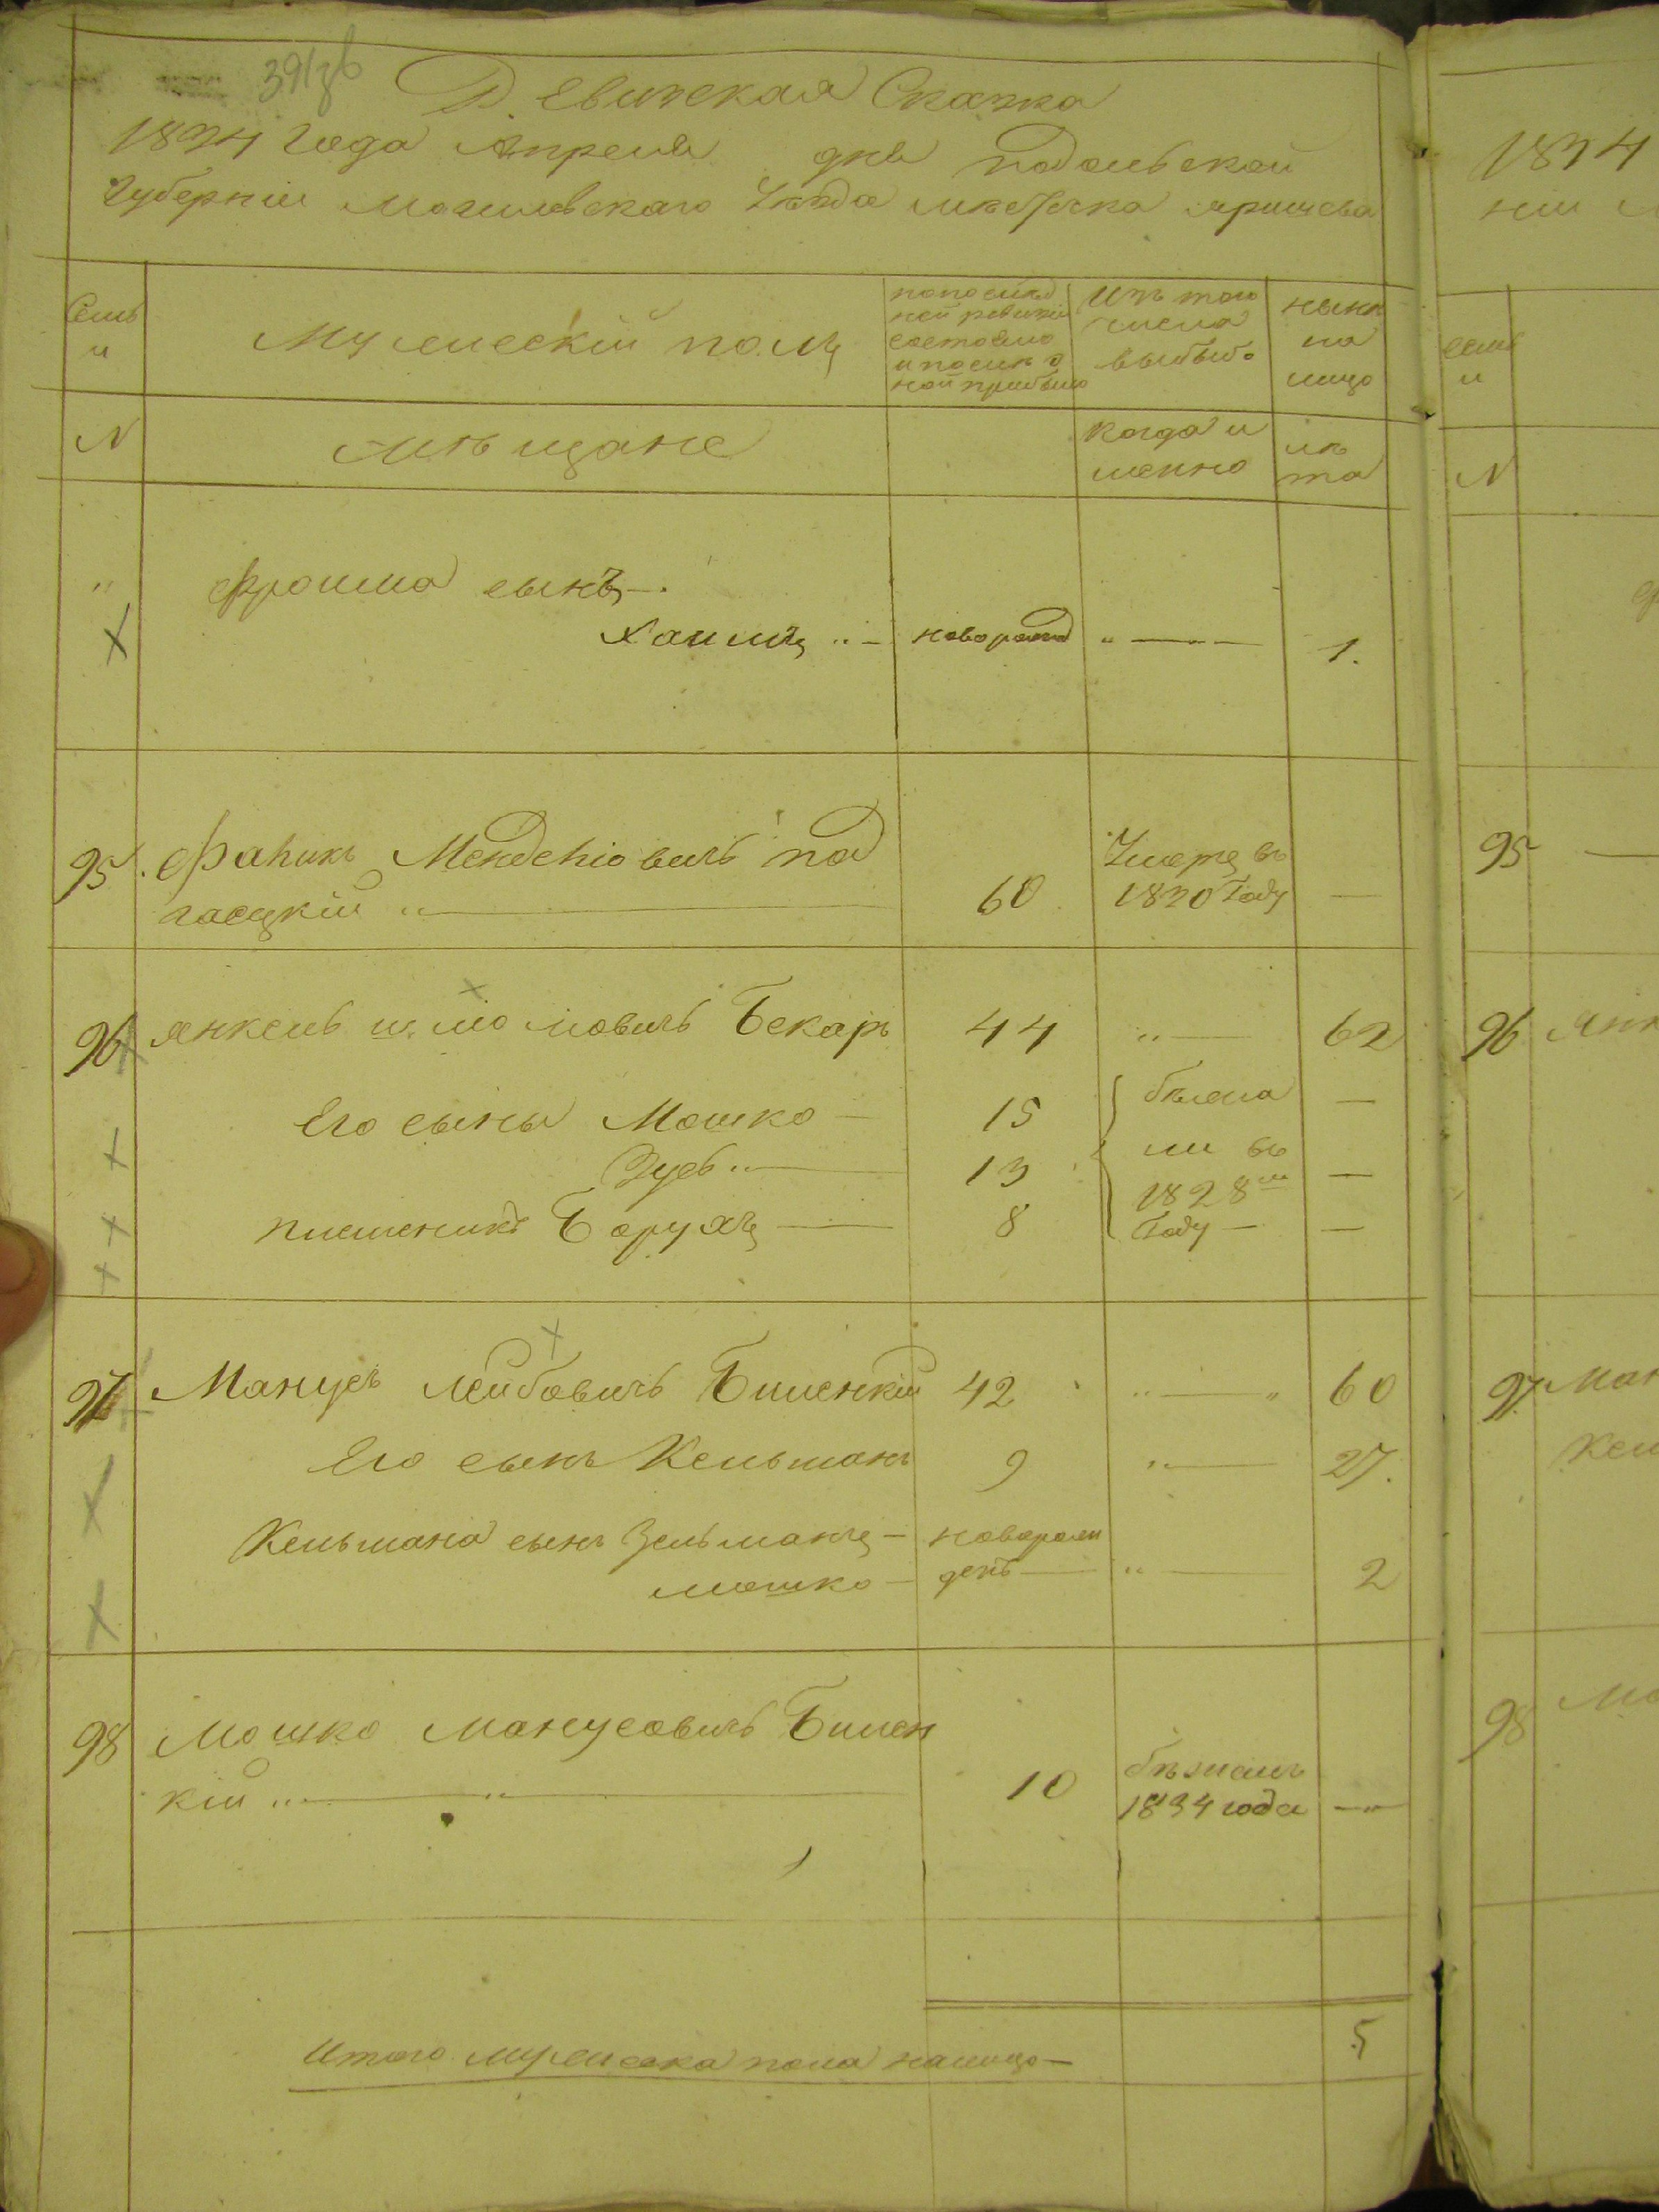 391
Ревизская Сказка
1834 Года Апреля дня подольской
Губерніи Могилевского Уезда мѣстечка яришева
Семь
и
Мужескій полъ
По последней ревизіи
состояло
и после
ной прибыло
Изъ того
числа
выбыло
ныне
на
лицо
N
мѣщане
когда и
менно
лѣ
та
Фроима сынъ
Хаимъ новорожд 1.
95. Мендельовичъ под
гаецкій 60 Умеръ въ
1830 Году —
96 янкель шліомовичъ Бекаръ 44 62
Его сыны Мошко 15 бѣжа —
Зусь 13 ли въ
1828м —
племеникъ Борухъ 8 Году —
97 Манусъ лейбовичъ Биленкій 42 60
Его сынъ Кельманъ 9 27.
Кельмана сынъ Зельманъ — новорож
мошко — денъ 2
98 Мошко Манусовичъ Билен
кій 10 бѣжалъ
1834 года —
Итого мужеска пола налицо — 5
1834
ніи
семь
и
N
95
96 Янк
97 Ман
Кел
98 Мо